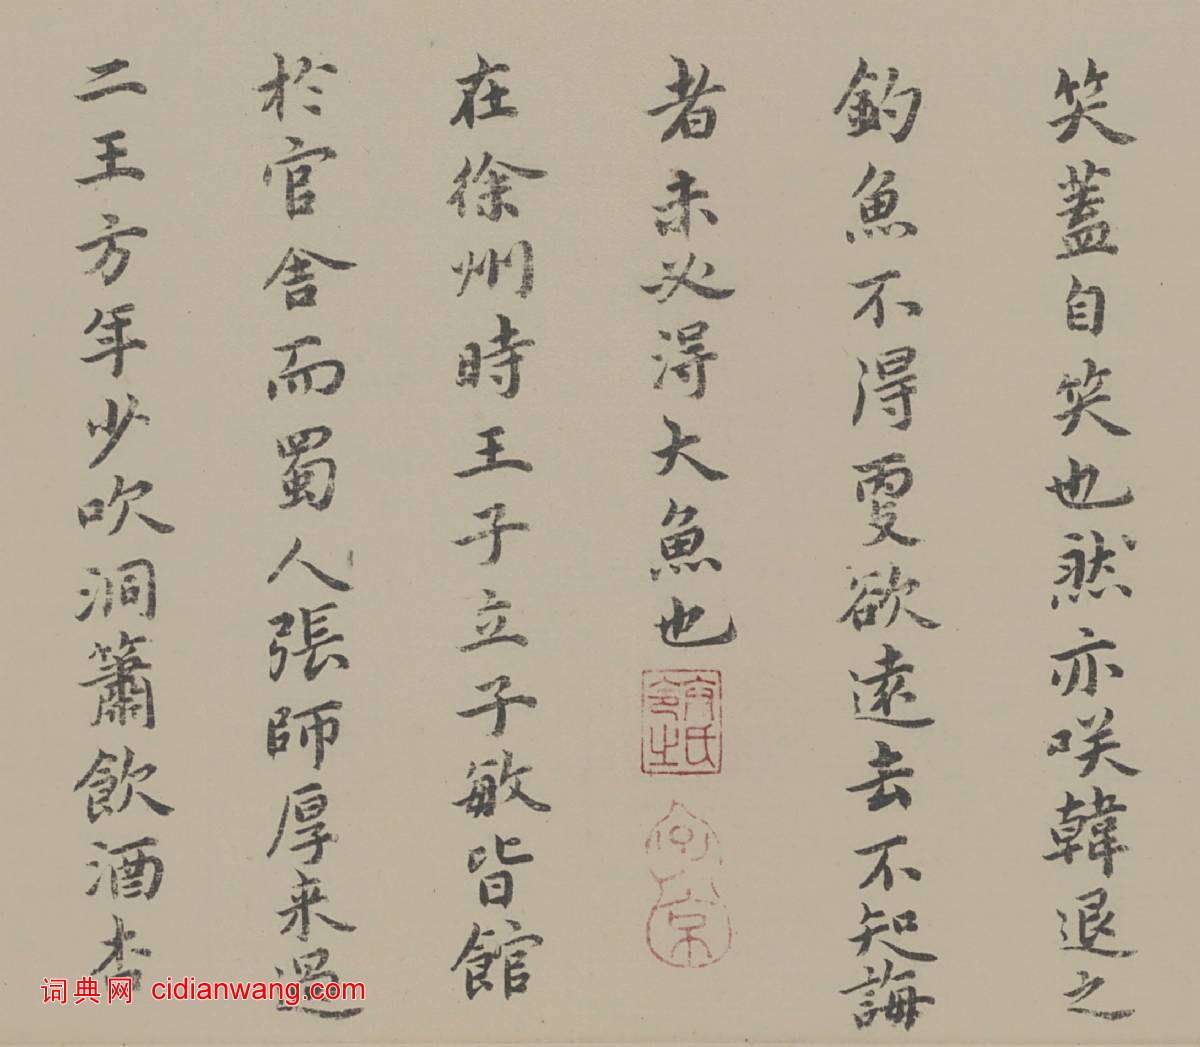 笑蓋自笑也然亦咲韓退之
釣魚不得更欲遠去不知誨
者未必得大魚也
在徐州時王子立子敏皆館
於官舍而蜀人張師厚来過
二王方年少吹洞簫飲酒杏
词典网 cidianwang.com